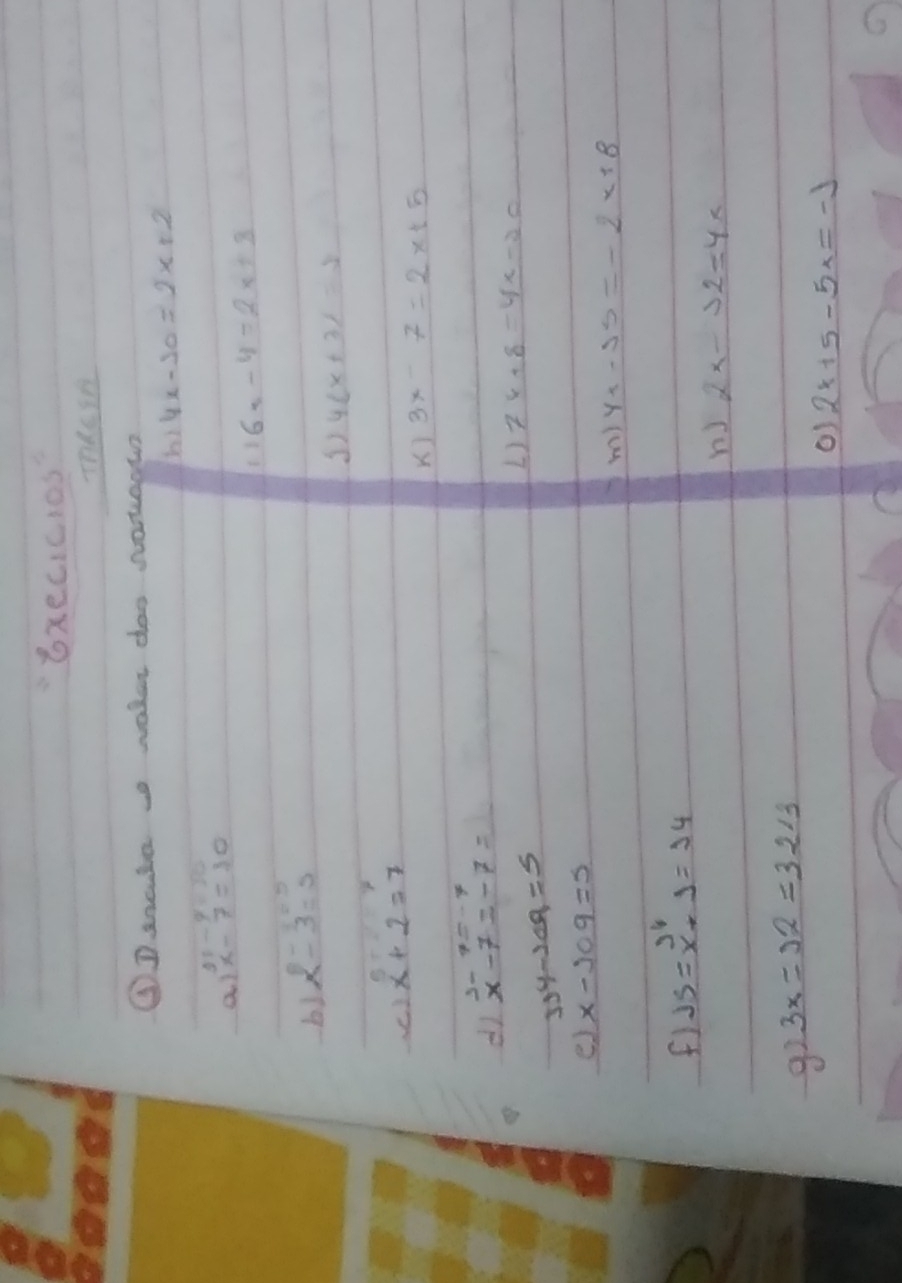 "Execicios"
TAREFA
① Descubra o valor das
a) x - 7 = 10
b) x - 3 = 5
c) x + 2 = 7
1 - 7 = - 7
d) x - 7 = - 7 =
114 - 109 = 5
e) x - 109 = 5
14
f) 15 = x + 1 = 14
g) 3x = 12 = 3
h) 4x - 10 = 2x + 2
i) 6x - 4 = 2x +
j) 4(x +
k) 3x - 7 = 2x + 5
L) 7x + 8 = 4x - 10
m) 4x - 15 = - 2x + 8
n) 2x - 12 = 4x
o) 2x + 5 - 5x = - 1